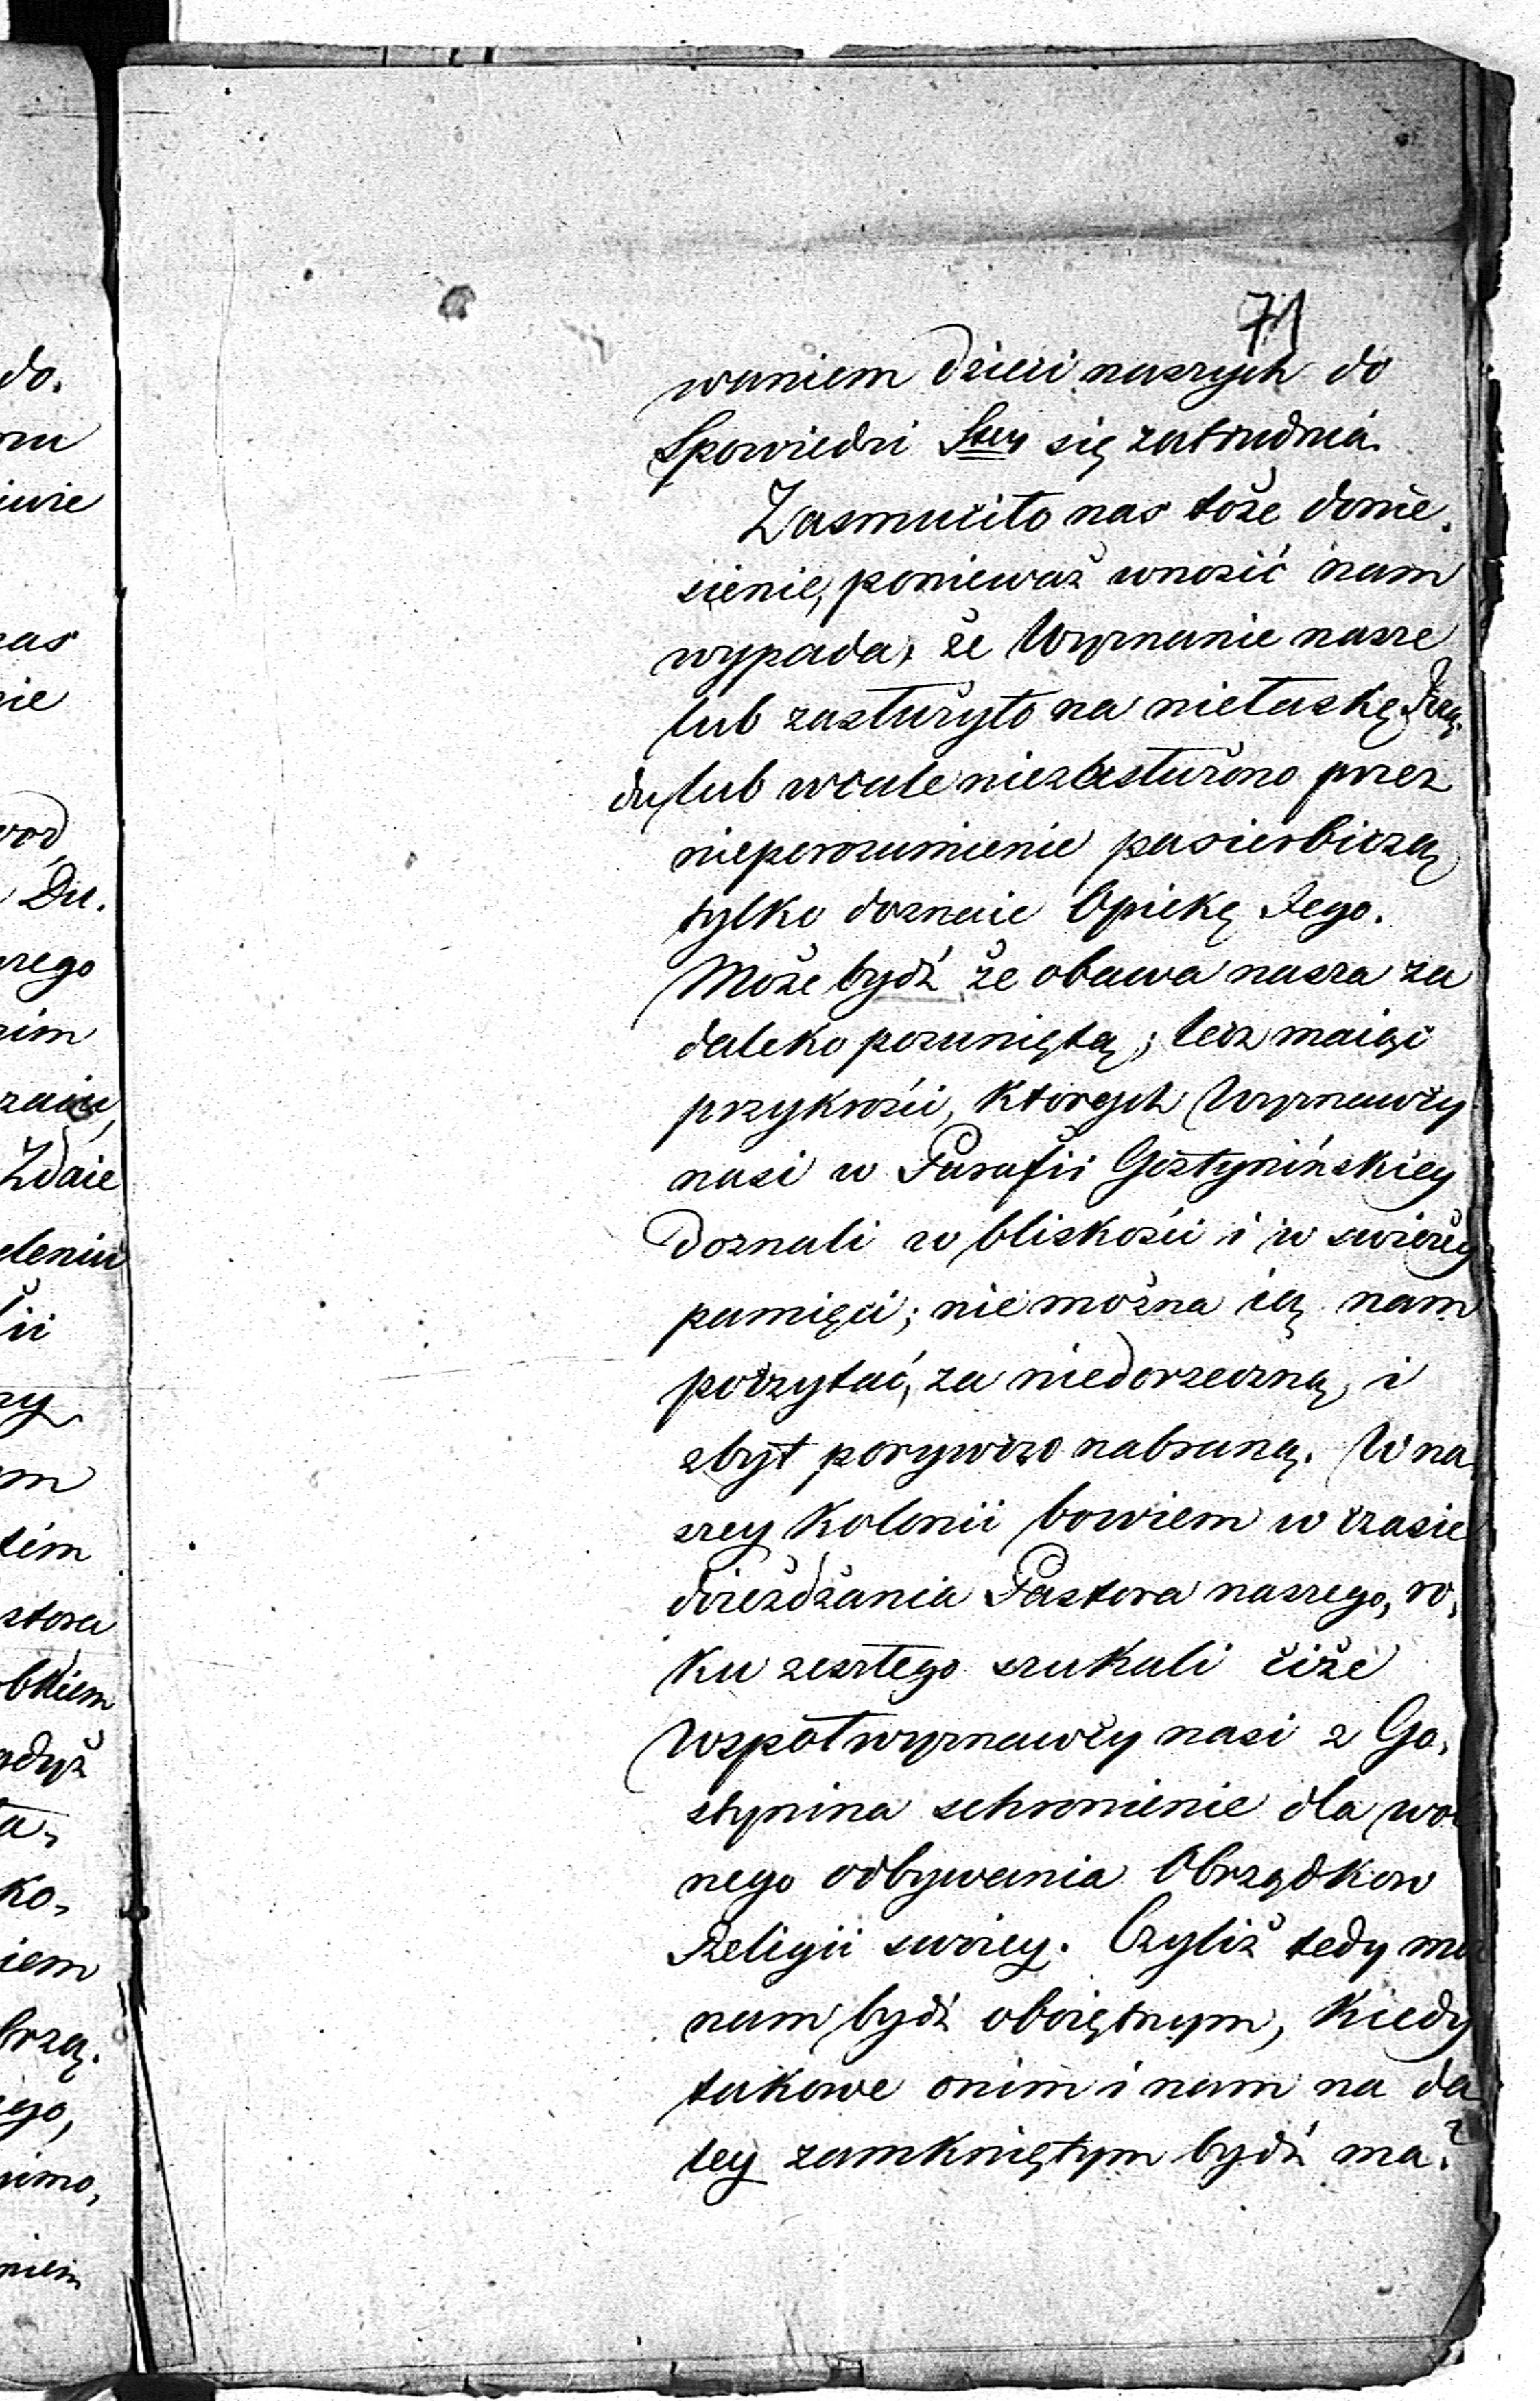 71
waniem dzieci naszych do
Spowiedzi Stey się zatrudniá.
Zasmuciło nas toże donie,
sienie, ponieważ wnosić nam
wypada, że Wyznanie nasze
lub zasłużyło na niełaskę Rzą,
du, lub wcale niezasłużono przez
nieporozumienie pasierbiczą
tylko doznaie Opiekę Jego.
Może bydź że obawa nasza za
daleko posuniętą; lecz maiąc
przykrości, ktorych Wyznawcy
nasi w Parafii Gostynińskiey
doznali w bliskości i w swieżey
pamięci; nie można ią nam
poczytać, za niedorzeczną, i
zbyt porywczo nabraną. W na,
szey Kolonii bowiem w czasie
dzieżdżania Pastora naszego, ro,
ku zeszłego szukali ciże
Wspołwyznawcy nasi z Go,
stynina schronienie dla wol
nego odbywania Obrządkow
Religii swoiey. Czyliż tedy ma
nam bydź oboiętnym, kiedy
takowe onim i nam na da
ley zamkniętym bydź ma?
do.
nas
nie
Du.
Zdaie
leniu
stora
gdyż
ko,